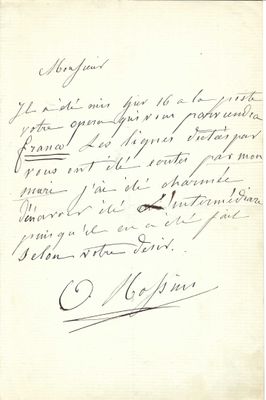 Monsieur
Il a été mis hier 16 a la poste
votre opera qui vous parviendra
franco. Les lignes dictées par
vous ont été écrites par mon
mari j'ai été charmée
d'avoir été l'intermédiaire
puisqu'il en a été fait
selon votre desir.
O Rossini